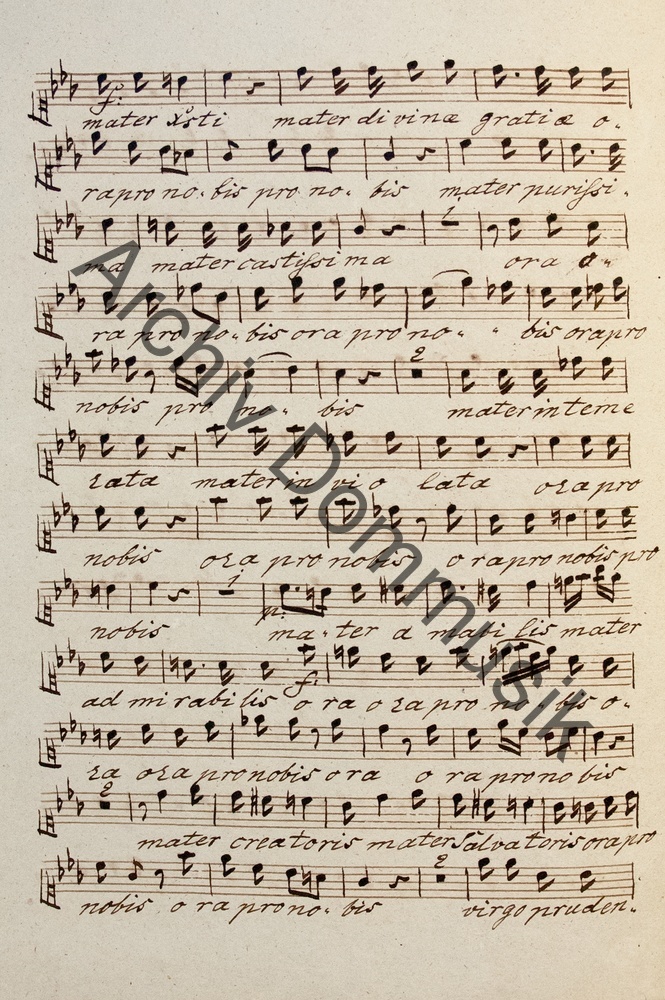 f:
mater Xsti mater divinæ gratiæ o-
ra pro no-bis pro no-bis mater purissi-
ma mater castissima ora o-
1
ra pro no-bis ora pro no- - bis ora pro
2
nobis pro no-bis mater inteme
rata mater in vio lata ora pro
nobis ora pro nobis o ra pro nobis pro
1
p:
nobis ma-ter a mabi lis mater
f:
ad mi rabi lis o ra o ra pro no-bis o-
ra ora pro nobis ora o ra pro no bis
2
mater creatoris mater Salvatoris ora pro
2
nobis o ra pro no-bis virgo pruden-
Archiv Dommusik